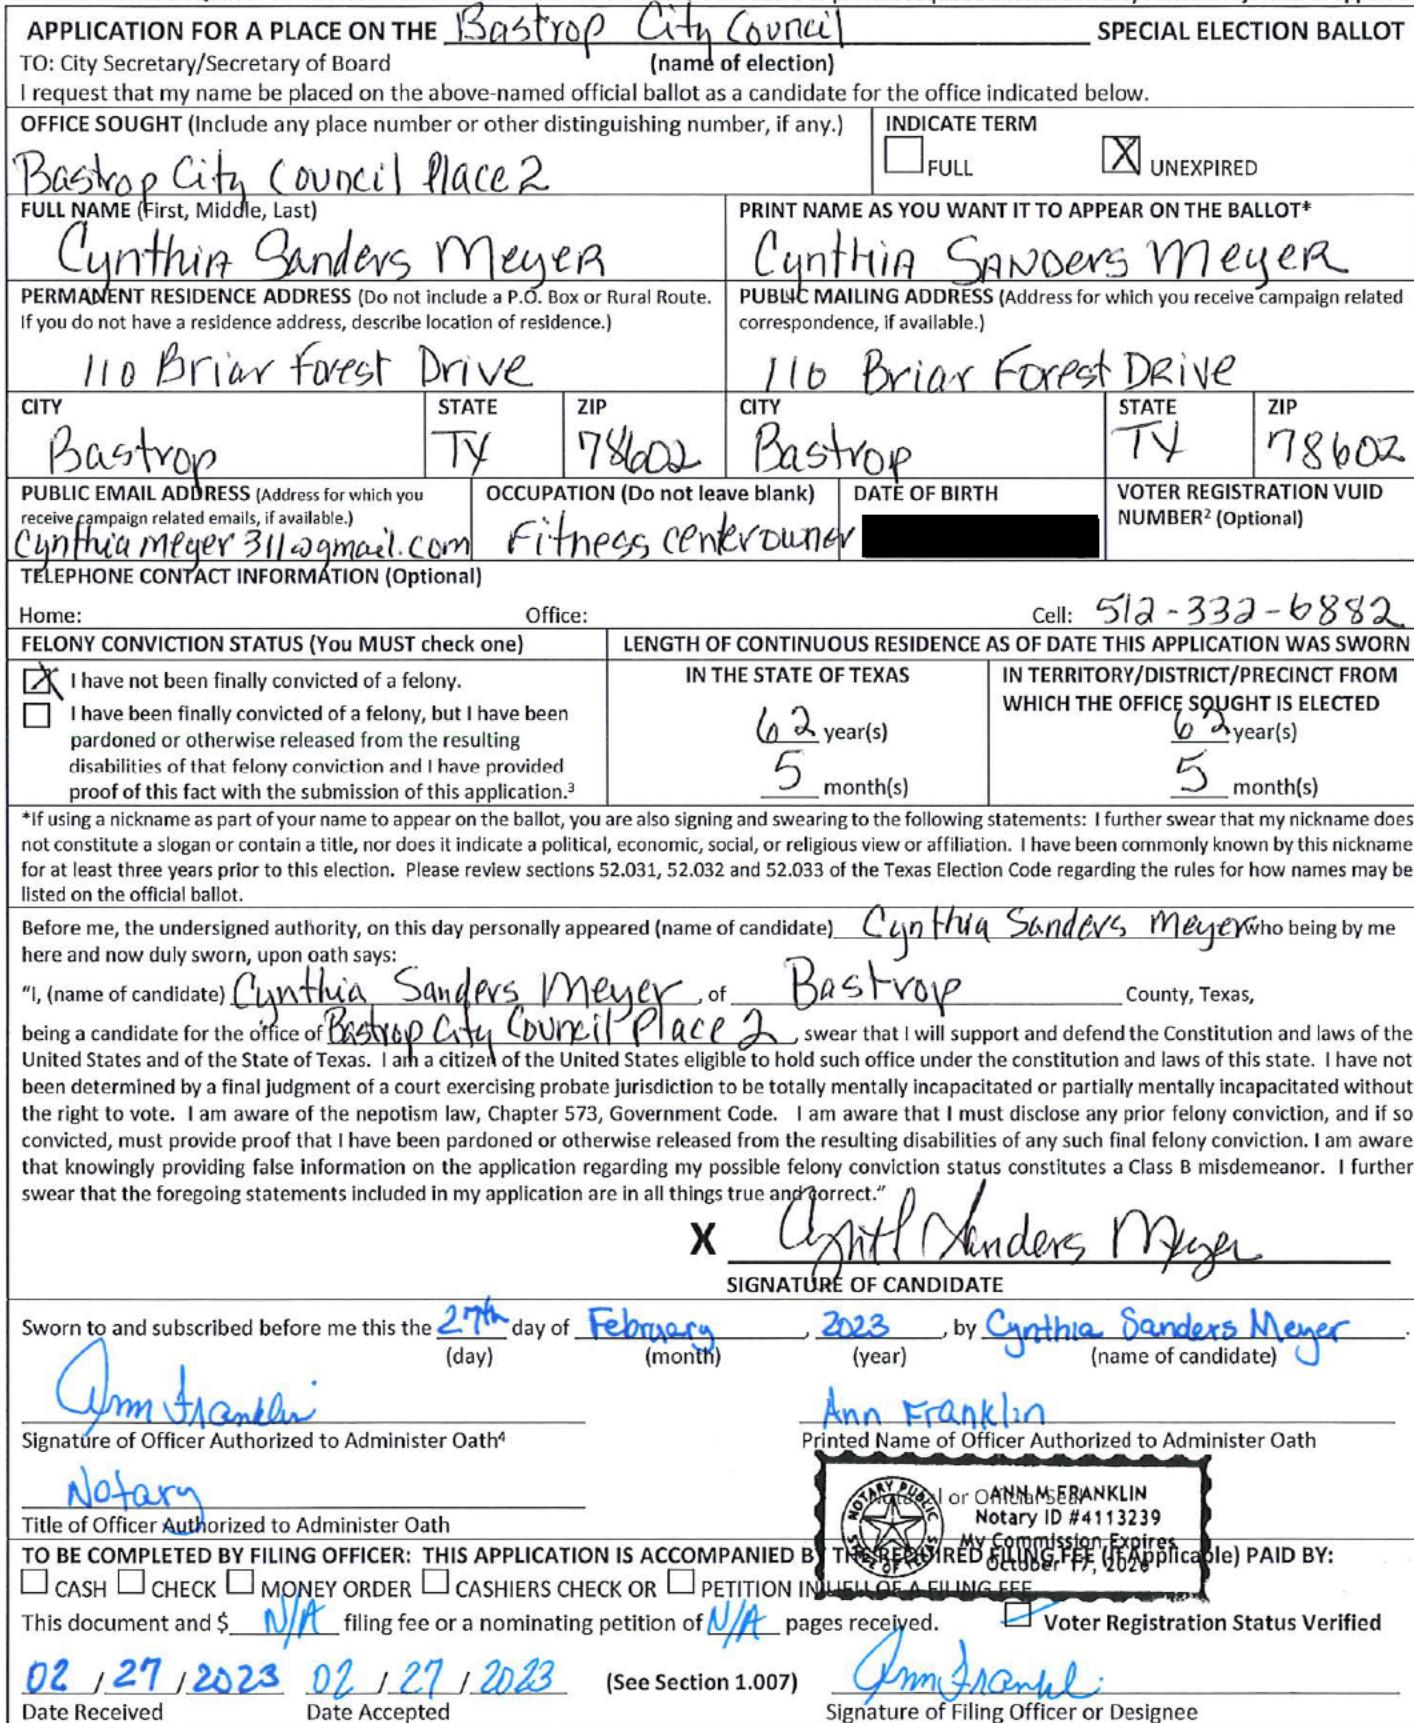 APPLICATION FOR A PLACE ON THE Bastrop City Council SPECIAL ELECTION BALLOT
TO: City Secretary/Secretary of Board (name of election)
I request that my name be placed on the above-named official ballot as a candidate for the office indicated below.
OFFICE SOUGHT (Include any place number or other distinguishing number, if any.) INDICATE TERM
Bastrop City Council Place 2 FULL X UNEXPIRED
FULL NAME (First, Middle, Last) PRINT NAME AS YOU WANT IT TO APPEAR ON THE BALLOT*
Cynthia Sanders Meyer Cynthia Sanders Meyer
PERMANENT RESIDENCE ADDRESS (Do not include a P.O. Box or Rural Route. PUBLIC MAILING ADDRESS (Address for which you receive campaign related
If you do not have a residence address, describe location of residence.) correspondence, if available.)
110 Briar Forest Drive 110 Briar Forest Drive
CITY STATE ZIP CITY STATE ZIP
Bastrop TX 78602 Bastrop TX 78602
PUBLIC EMAIL ADDRESS (Address for which you OCCUPATION (Do not leave blank) DATE OF BIRTH VOTER REGISTRATION VUID
receive campaign related emails, if available.) NUMBER² (Optional)
cynthiameyer311@gmail.com Fitness center owner
TELEPHONE CONTACT INFORMATION (Optional)
Home: Office: Cell: 512-332-6882
FELONY CONVICTION STATUS (You MUST check one) LENGTH OF CONTINUOUS RESIDENCE AS OF DATE THIS APPLICATION WAS SWORN
X I have not been finally convicted of a felony. IN THE STATE OF TEXAS IN TERRITORY/DISTRICT/PRECINCT FROM
I have been finally convicted of a felony, but I have been WHICH THE OFFICE SOUGHT IS ELECTED
pardoned or otherwise released from the resulting 62 year(s) 62 year(s)
disabilities of that felony conviction and I have provided
proof of this fact with the submission of this application.³ 5 month(s) 5 month(s)
*If using a nickname as part of your name to appear on the ballot, you are also signing and swearing to the following statements: I further swear that my nickname does
not constitute a slogan or contain a title, nor does it indicate a political, economic, social, or religious view or affiliation. I have been commonly known by this nickname
for at least three years prior to this election. Please review sections 52.031, 52.032 and 52.033 of the Texas Election Code regarding the rules for how names may be
listed on the official ballot.
Before me, the undersigned authority, on this day personally appeared (name of candidate) Cynthia Sanders Meyer who being by me
here and now duly sworn, upon oath says:
"I, (name of candidate) Cynthia Sanders Meyer, of Bastrop County, Texas,
being a candidate for the office of Bastrop City Council Place 2, swear that I will support and defend the Constitution and laws of the
United States and of the State of Texas. I am a citizen of the United States eligible to hold such office under the constitution and laws of this state. I have not
been determined by a final judgment of a court exercising probate jurisdiction to be totally mentally incapacitated or partially mentally incapacitated without
the right to vote. I am aware of the nepotism law, Chapter 573, Government Code. I am aware that I must disclose any prior felony conviction, and if so
convicted, must provide proof that I have been pardoned or otherwise released from the resulting disabilities of any such final felony conviction. I am aware
that knowingly providing false information on the application regarding my possible felony conviction status constitutes a Class B misdemeanor. I further
swear that the foregoing statements included in my application are in all things true and correct."
X Cynth Sanders Meyer
SIGNATURE OF CANDIDATE
Sworn to and subscribed before me this the 27th day of February, 2023, by Cynthia Sanders Meyer.
(day) (month) (year) (name of candidate)
Ann Franklin Ann Franklin
Signature of Officer Authorized to Administer Oath⁴ Printed Name of Officer Authorized to Administer Oath
Notary
Title of Officer Authorized to Administer Oath
NOTARY PUBLIC STATE OF TEXAS
ANN M FRANKLIN
Notary ID #4113239
My Commission Expires
October 17, 2026
TO BE COMPLETED BY FILING OFFICER: THIS APPLICATION IS ACCOMPANIED BY THE REQUIRED FILING FEE (If Applicable) PAID BY:
CASH CHECK MONEY ORDER CASHIERS CHECK OR PETITION IN LIEU OF A FILING FEE
This document and $ N/A filing fee or a nominating petition of N/A pages received. Voter Registration Status Verified
02 / 27 / 2023 02 / 27 / 2023 (See Section 1.007) Ann Frankl
Date Received Date Accepted Signature of Filing Officer or Designee